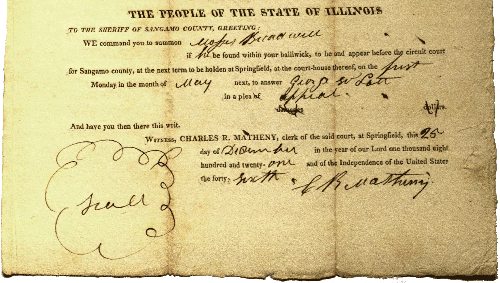 THE PEOPLE OF THE STATE OF ILLINOIS
TO THE SHERIFF OF SANGAMO COUNTY, GREETING:
WE command you to summon Moses Broadwell
if he be found within your bailiwick, to be and appear before the circuit court
for Sangamo county, at the next term to be holden at Springfield, at the court-house thereof, on the first
Monday in the month of May next, to answer George W
in a plea of appeal.
damage dollars.
And have you then there this writ.
WITNESS, CHARLES R. MATHENY, clerk of the said court, at Springfield, this 25
day of December in the year of our Lord one thousand eight
hundred and twenty-one and of the Independence of the United States
the forty-sixth C R Matheny
Seal